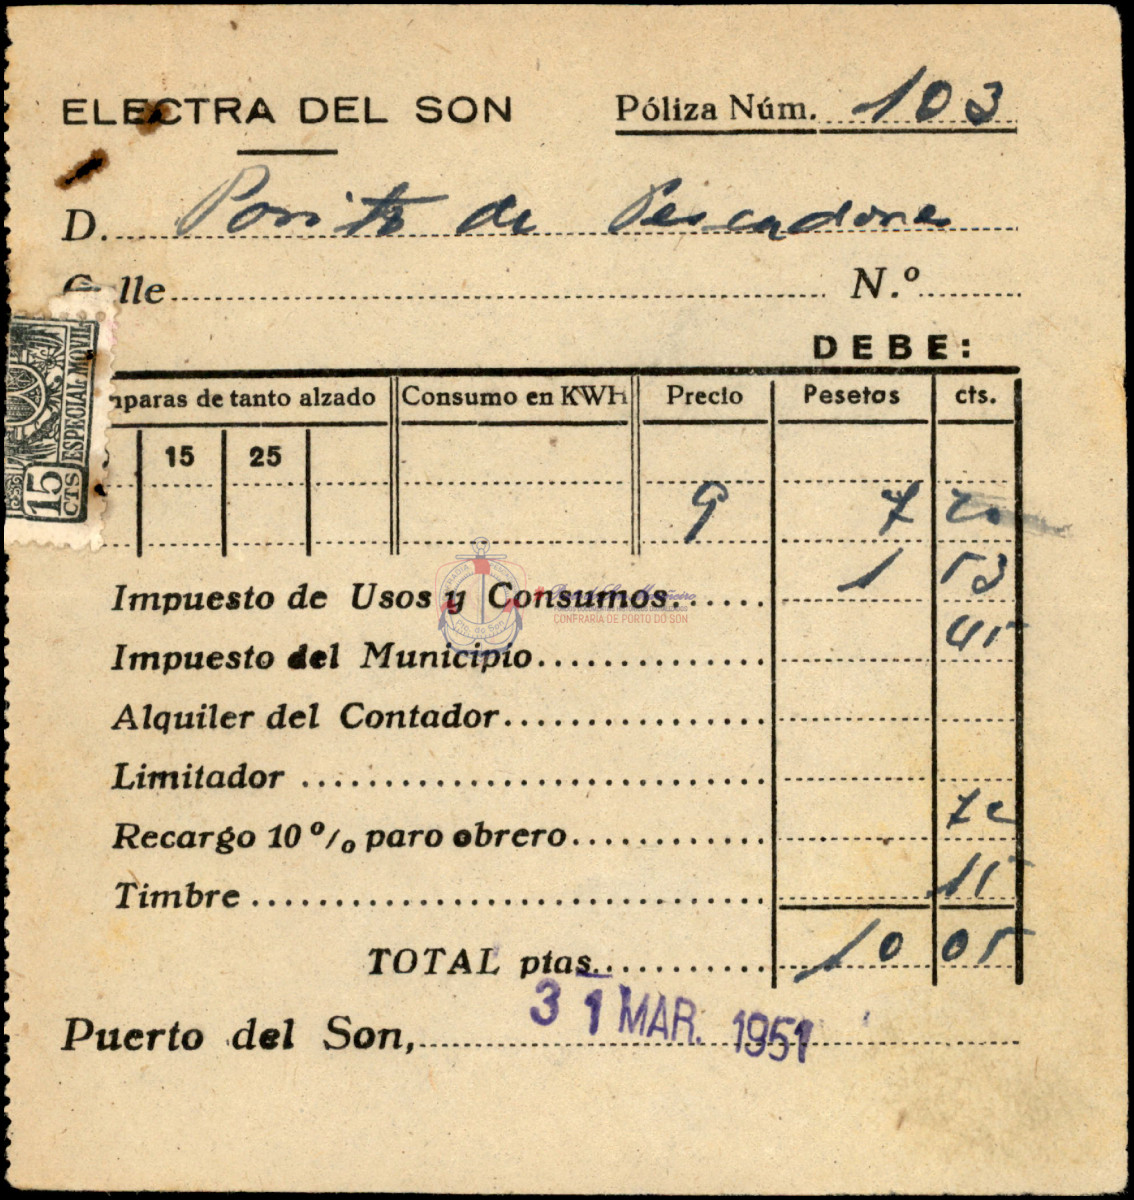 ELECTRA DEL SON
Póliza Núm. 103
D. Posito de Pescadores
Calle N.º
DEBE:
mparas de tanto alzado Consumo en KWH Precio Pesetas cts.
15 25
9 7 20
Impuesto de Usos y Consumos 1 53
Impuesto del Municipio 45
Alquiler del Contador
Limitador
Recargo 10 % paro obrero 72
Timbre 15
TOTAL ptas. 10 05
Puerto del Son, 31 MAR. 1951
ESPECIAL MOVIL
15 CTS
CONFRARÍA DE PORTO DO SON